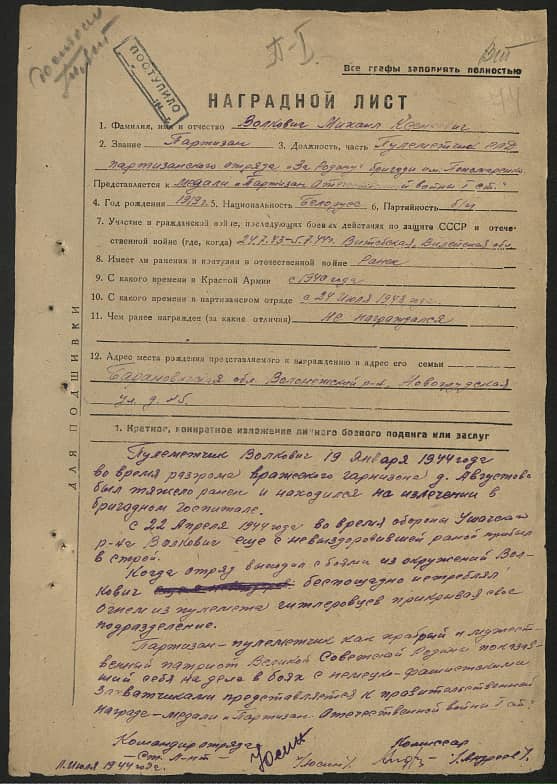 ПОСТУПИЛО
Все графы заполнять полностью
НАГРАДНОЙ ЛИСТ
1. Фамилия, имя и отчество Волкович Михаил
2. Звание Партизан 3. Должность, часть Пулеметчик
партизанского отряда „За Родину" бригады им. Пономаренко
Представляется к медали „Партизан Отечественной войны I ст."
4. Год рождения 5. Национальность Белорус 6. Партийность б/п
7. Участие в гражданской войне, последующих боевых действиях по защите СССР и отече-
ственной войне (где, когда) 24.7.43–5.7.44г. Витебская, Вилейская обл.
8. Имеет ли ранения и контузии в отечественной войне Ранен
9. С какого времени в Красной Армии с 1940 года
10. С какого времени в партизанском отряде с 24 июля 1943 года.
11. Чем ранее награжден (за какие отличия) Не награждался
12. Адрес места рождения представляемого к награждению и адрес его семьи
обл. р-н, Новогрудская
ул. д. 45
ДЛЯ ПОДШИВКИ
1. Краткое, конкретное изложение личного боевого подвига или заслуг
Пулеметчик Волкович 19 января 1944 года
во время разгрома вражеского гарнизона д. Августово
был тяжело ранен и находился на излечении в
бригадном госпитале.
С 22 Апреля 1944 года во время обороны Ушачского
р-на Волкович еще с невыздоровившей раной прибыл
в строй.
Когда отряд выходил с боями из окружений Вол-
кович беспощадно истреблял
Огнем из пулемета гитлеровцев прикрывая свое
подразделение.
Партизан-пулеметчик как храбрый и мужест-
венный патриот Великой Советской Родины показав-
ший себя на деле в боях с немецко-фашистскими
Захватчиками представляется к правительственной
награде – медали „Партизан Отечественной войны I ст."
Командир отряда Комиссар
– Ст. Л-нт – /Юсин/ /Андреев/.
11. Июля 1944 года.